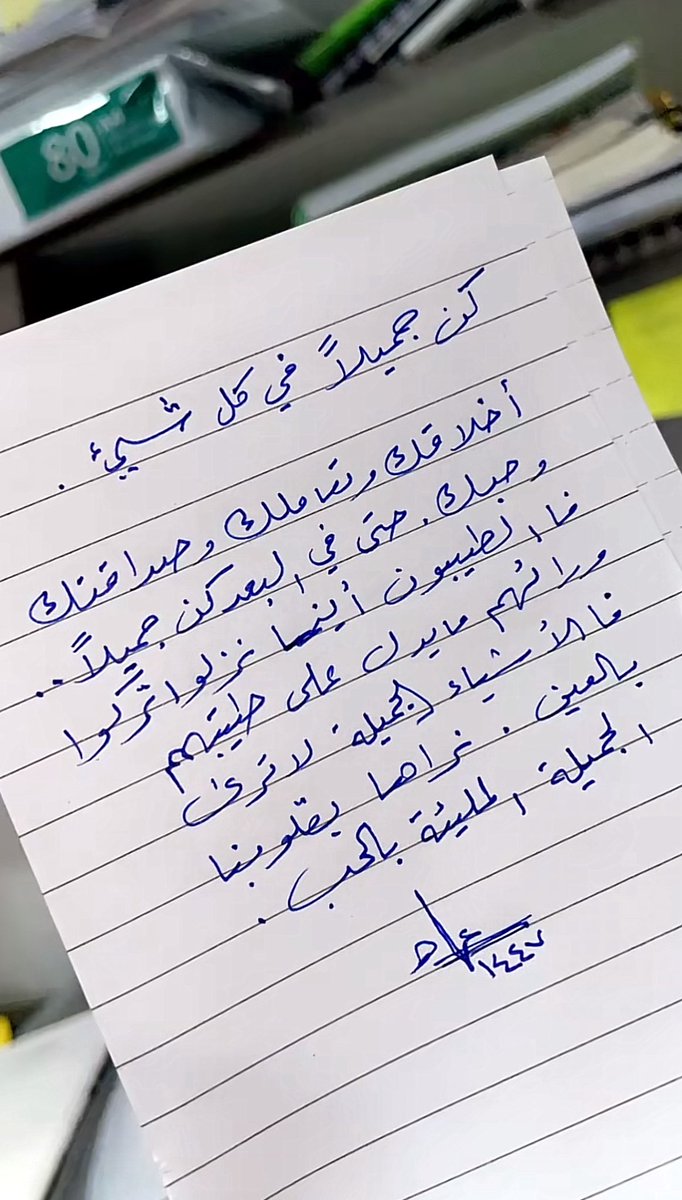 80
كن جميلاً في كل شيئ .
أخلاقك وتعاملك وصداقتك
وحبك . حتى في البعد كن جميلاً ..
فا الطيبون أينما نزلوا تركوا
ورائهم ما يدل على طيبتهم
فا الأشياء الجميلة لا ترى
بالعين . نراها بقلوبنا
الجميلة المليئة بالحب .
١٤٤٧